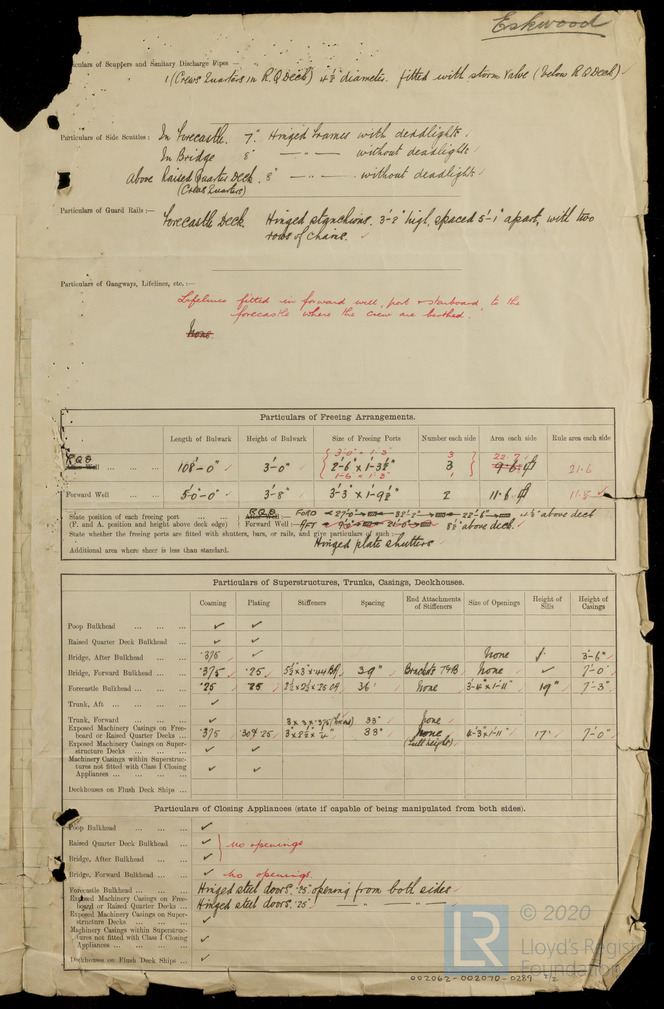 Eskwood
culars of Scuppers and Sanitary Discharge Pipes —
1 (Crews Quarters in R.Q Deck) 4½" diameter. fitted with storm valve (below R Q Deck)
Particulars of Side Scuttles :
In Forecastle. 7". Hinged frames with deadlights
In Bridge 8" — " — without deadlights
above Raised Quarter Deck. 8" — " — without deadlights
(Crews Quarters)
Particulars of Guard Rails :—
Forecastle Deck. Hinged stanchions. 3'-2" high, spaced 5'-1" apart, with two
rows of chains.
Particulars of Gangways, Lifelines, etc. :—
Lifelines fitted in forward well, port & starboard, to the
forecastle where the crew are berthed.
None
Particulars of Freeing Arrangements.
Length of Bulwark Height of Bulwark Size of Freeing Ports Number each side Area each side Rule area each side
3'-0" x 1'-3" 3 22.7
R.Q.D. Well ... ... ... 108'-0" 3'-0" 2'-6" x 1'-3½" 3 21.6
1'-6 x 1'-3" 1
Forward Well ... ... 50'-0" 3'-8" 3'-3 x 1'-9½" 2 11.6 11.8
State position of each freeing port ... ... R.Q.D. FORD 4½" above deck
(F. and A. position and height above deck edge) Forward Well :— AFT 8½" above deck.
State whether the freeing ports are fitted with shutters, bars, or rails, and give particulars of such :—
Hinged plate shutters
Additional area where sheer is less than standard.
Particulars of Superstructures, Trunks, Casings, Deckhouses.
Coaming Plating Stiffeners Spacing End Attachments of Stiffeners Size of Openings Height of Sills Height of Casings
Poop Bulkhead ... ... ...
Raised Quarter Deck Bulkhead ...
Bridge, After Bulkhead ... ... .375 None 3'-6"
Bridge, Forward Bulkhead ... ... .375 .25 5½ x 3 x .44 BA 29" Brackets T&B None 7'-0"
Forecastle Bulkhead ... ... ... .25 .25 2½ x 2½ x .25 OA 36" None 3'-4" x 1'-11" 19" 7'-3"
Trunk, Aft ... ... ...
Trunk, Forward ... ... ... 3 x 3 x .375 33" none
Exposed Machinery Casings on Free-
board or Raised Quarter Decks ... .375 .30 & .25 3 x 2½ x ¼" 33" None 4'-3 x 1'-11" 17" 7'-0"
(full height)
Exposed Machinery Casings on Super-
structure Decks ... ... ...
Machinery Casings within Superstruc-
tures not fitted with Class I Closing
Appliances ... ... ... ...
Deckhouses on Flush Deck Ships ...
Particulars of Closing Appliances (state if capable of being manipulated from both sides).
Poop Bulkhead ... ... ...
Raised Quarter Deck Bulkhead ... no openings
Bridge, After Bulkhead ... ...
Bridge, Forward Bulkhead ... ... no openings.
Forecastle Bulkhead ... ... ... Hinged steel doors. .25" opening from both sides
Exposed Machinery Casings on Free-
board or Raised Quarter Decks ... Hinged steel doors .25". — " — " —
Exposed Machinery Casings on Super-
structure Decks ... ... ...
Machinery Casings within Superstruc-
tures not fitted with Class I Closing
Appliances ... ... ... ...
Deckhouses on Flush Deck Ships ...
LR © 2020
Lloyd's Register
Foundation
002062-002070-0289 2/2